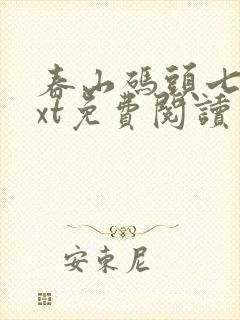 春山碼頭七
xt免費閱讀
安東尼